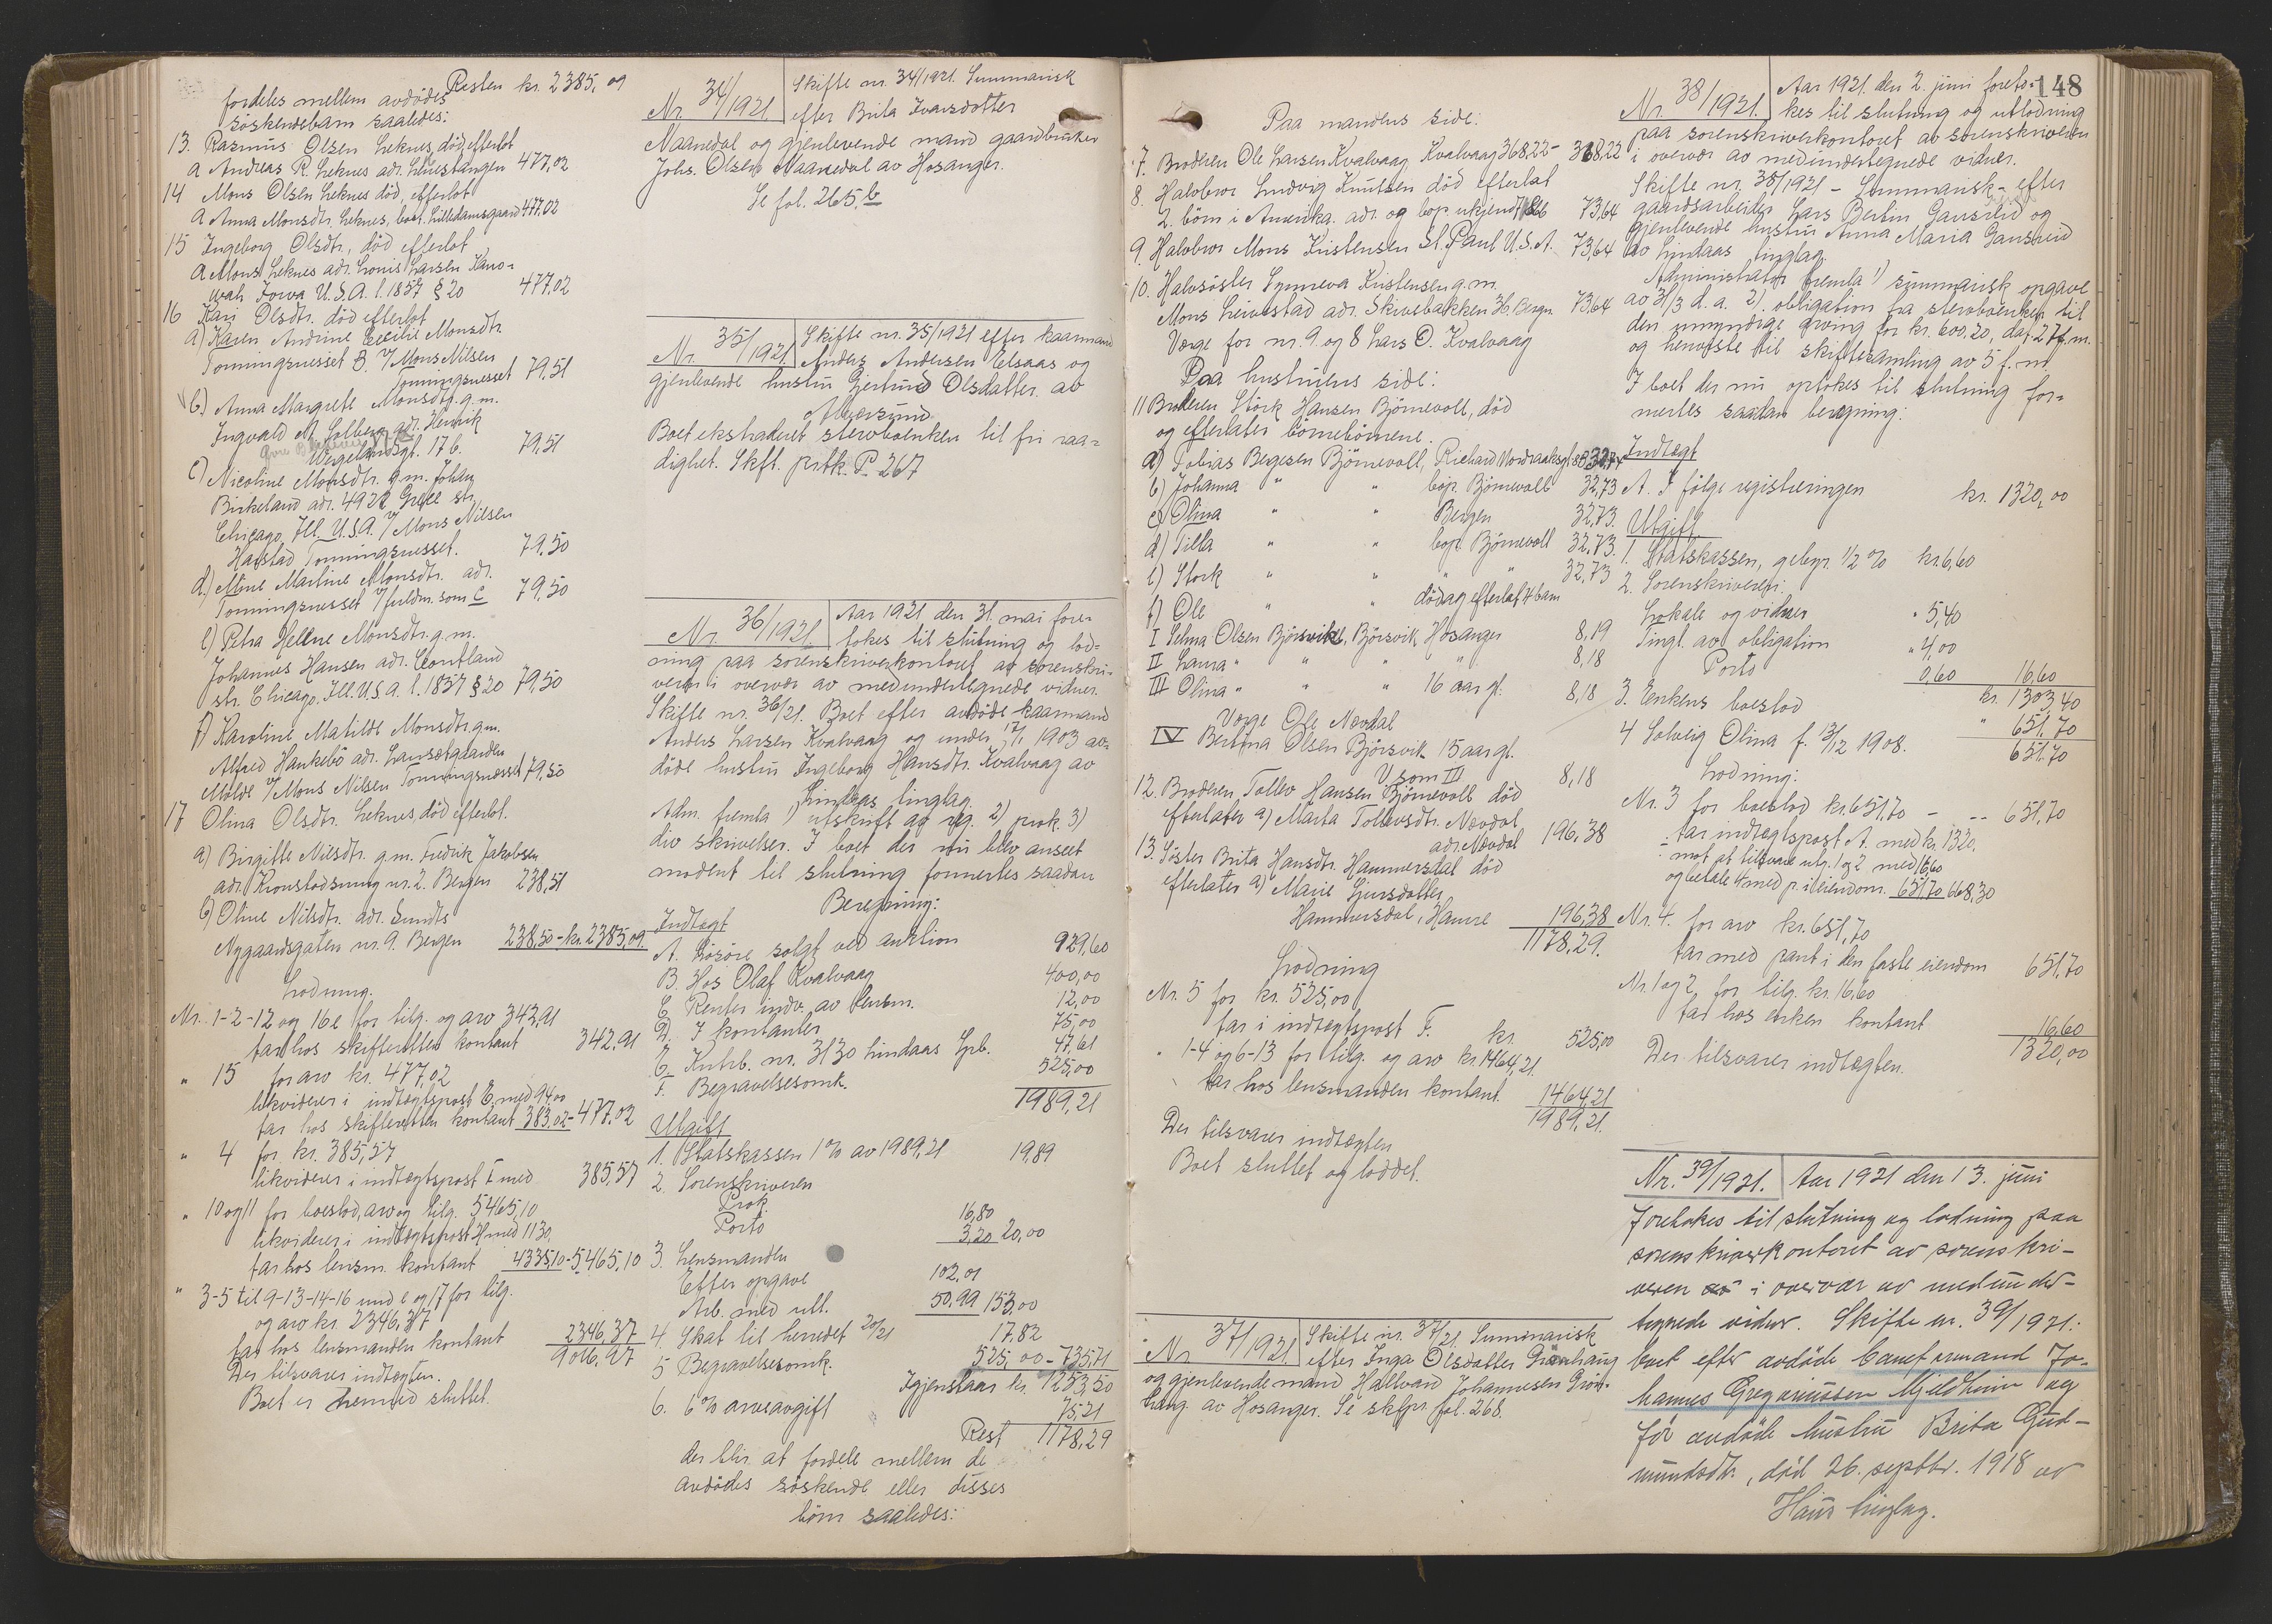 Resten kr. 2385,09
fordeles mellem avdödes
söskendebarn saaledes:
13 Rasmus Olsen Leknes, död, efterlot
a Andreas R. Leknes adr. Leirestangen 477,02
14 Mons Olsen Leknes död, efterlot
a Anna Monsdtr. Leknes, boet. Lilledamsgaard 477,02
15 Ingeborg Olsdtr., död efterlot
a Mons Leknes adr. Louis Larsen Kana-
wah Jowa U.S.A. l. 1857 § 20 477,02
16 Kari Olsdtr. död efterlot
a) Karen Andrine Cecilie Monsdtr.
Tonningsnesset B. v/ Mons Nilsen
Tonningsnesset 79,51
b.) Anna Margrete Monsdtr. g.m.
Ingvald M. Solberg adr. Henrik
Wergelandsgt. 17 b. 79,51
c) Nicoline Monsdtr. g.m. Johan
Birkeland adr. 4922 Grace str.
Chicago, Ill. U.S.A. v/ Mons Nilsen
Harstad Tonningsnesset. 79,50
d.) Mine Martine Monsdtr. adr.
Tonningsnesset v/ fuldm. som c 79,50
e) Petra Helene Monsdtr. g.m.
Johannes Hansen adr.
str. Chicago. Ill. U.S.A. l. 1857 § 20 79,50
f) Karoline Matilde Monsdtr. g.m.
Alfred Hankebö adr.
Molde v/ Mons Nilsen Tonningsnesset 79,50
17 Olina Olsdtr. Leknes, död efterlot.
a) Birgitte Nilsdtr. g.m. Fredrik Jakobsen
adr. Kronstadsmug nr. 2. Bergen 238,51
b) Oline Nilsdtr. adr. Sundts
Nygaardsgaten nr. 9. Bergen 238,50 - kr. 2385,09
Lodning.
Nr. 1-2-12 og 16 e for tilg. og arv 342,91
tar hos skifteretten kontant 342,91
" 15 for arv kr. 477,02
likviderer i indtægtspost E. med 94,00
tar hos skifteretten kontant 383,02 - 477,02
" 4 for kr. 385,57
likviderer i indtægtspost I med 385,57
" 10 og 11 for boeslod, arv og tilg. 5465,10
likviderer i indtægtspost H med 1130,
tar hos lensm. kontant 4335,10 - 5465,10
" 3-5 til 9-13-14-16 und e og 17 for tilg.
og arv kr. 2346,37
tar hos lensmanden kontant 2346,37
Der tilsvarer indtægten. 9016,97
Boet er hermed sluttet.
Nr. 34/1921. Skifte nr. 34/1921. Summarisk
efter Brita Ivarsdotter
Naanedal og gjenlevende mand gaardbruker
Johs. Olsen Naanedal av Hosanger.
Se fol. 265 b
Nr. 35/1921 Skifte nr. 35/1921 efter kaarmand
Anders Andersen Elsaas og
gjenlevende hustru Gjertrud Olsdatter av
Alversund
Boet ekstraderet stervboenken til fri raa-
dighet. Skft. prtk. P. 267
Nr. 36/1921. Aar 1921 den 31. mai fore-
tokes til slutning og lod-
ning paa sorenskriverkontoret av sorenskri-
veren i overvær av medundertegnede vidner.
Skifte nr. 36/21. Boet efter avdöde kaarmand
Anders Larsen Kvalvaag og under 17/1 1903 av-
döde hustru Ingeborg Hansdtr. Kvalvaag av
Lindaas tinglag.
Adm. fremla 1) utskrift av reg. 2) prok. 3)
div skrivelser. I boet der nu blev anseet
modent til slutning formertes saadan
Beregning:
Indtægt
A. Lösöre solgt ved auktion 929,60
B. Hos Olaf Kvalvaag 400,00
C. Renter indv. av lensm. 12,00
D. I kontanter 75,00
E. Kntrb. nr. 3130 Lindaas Spb. 47,61
F. Begravelsesomk. 525,00
1989,21
Utgift
1. Statskassen 1% av 1989,21 19,89
2. Sorenskriveren
Prok. 16,80
Porto 3,20 20,00
3. Lensmanden
Efter opgave 102,01
Arb. med utl. 50,99 153,00
4. Skat til herredet 20/21 17,82
5 Begravelsesomk. 525,00 - 735,71
Igjenstaar kr. 1253,50
6. 6% arveavgift 75,21
Rest 1178,29
der blir at fordele mellem de
avdödes söskende eller disses
börn saaledes:
148
Paa mandens side:
7. Broderen Ole Larsen Kvalvaag, Kvalvaag 368,22 - 368,22
8. Halvbror Ludvig Knutsen död efterlat
2 börn i Amerika. adr. og bop. ukjendt 73,64
9. Halvbror Mons Kristensen St. Paul U.S.A. 73,64
10. Halvsöster Synneva Kristensen g.m.
Mons Leirvestad adr. Skivebakken 36. Bergen 73,64
Værge for nr. 9. og 8 Lars O. Kvalvaag
Paa hustruens side:
11 Broderen Störk Hansen Björnevoll, död
og efterlater börnebörnene.
a) Tobias Begesen Björnevoll, Richard Nordraaksgt. 8 B 32,74
b) Johanna " " bop. Björnevoll 32,73
c) Olina " " Bergen 32,73.
d) Tilla " " bop. Björnevoll 32,73.
e) Störk " " " " 32,73
f) Ole " " död og efterlat 4 barn
I Selma Olsen Björsvik, Björsvik Hosanger 8,19
II Laura " " " " 8,18
III Olina " " " 16 aar gl. 8,18
Værge Ole Nævdal
IV Bertina Olsen Björsvik 15 aar gl.
V. som III 8,18
12. Broderen Tollev Hansen Björnevoll död
efterlater a) Marta Tollevsdtr. Nævdal
adr. Nævdal 196,38
13. Söster Brita Hansdtr. Hammersdal död
efterlater a) Marie Sjursdotter
Hammersdal, Hamre 196,38
1178,29.
Lodning
Nr. 5 for kr. 525,00
tar i indtægtspost F. kr. 525,00
" 1-4 og 6-13 for tilg. og arv kr. 1464,21.
tar hos lensmanden kontant. 1464,21
Der tilsvarer indtægten 1989,21.
Boet sluttet og loddet.
Nr. 37/1921. Skifte nr. 37/21. Summarisk
efter Inga Olsdatter Grönhaug
og gjenlevende mand Hallvard Johannesen Grön-
haug av Hosanger. Se skfpr. fol. 268.
Nr. 38/1921. Aar 1921. den 2. juni foreto-
kes til slutning og utlodning
paa sorenskriverkontoret av sorenskriveren
i overvær av medundertegnede vidner.
Skifte nr. 38/1921 - Summarisk - efter
gaardsarbeider Lars Bertin Gausreid og
gjenlevende hustru Anna Maria Gausreid
av Lindaas tinglag.
Administrator fremla 1) summarisk opgave
av 31/3 d.a. 2). obligation fra stervboenken til
den umyndige arving for kr. 600,20, dat. 27 f.m.
og henviste til skiftesamling av 5 f.m.
I boet der nu optokes til slutning for-
mertes saadan beregning:
Indtægt
A. I fölge registreringen kr. 1320,00
Utgift.
1. Statskassen, gebyr. 1/2 % kr. 6,60
2. Sorenskriveren:
Lokale og vidner " 5,40
Tingl. av obligation " 4,00
Porto 0,60 16,60
kr. 1303,40
3. Enkens boeslod " 651,70
4 Solveig Olina f. 13/12 1908. 651,70
Lodning:
Nr. 3 for boeslod kr. 651,70 - -- 651,70
tar indtægtspost A. med kr. 1320,
mot at tilsvare utg. 1 og 2 med 16,60
og betale 4 med p. i eiendom. 651,70 668,30
Nr. 4. for arv kr. 651,70
tar med pant i den faste eiendom 651,70
Nr. 1 og 2 for tilg. kr. 16,60
tar hos enken kontant 16,60
Der tilsvarer indtægten. 1320,00
Nr. 39/1921. Aar 1921 den 13. juni
foretokes til slutning og lodning paa
sorenskriverkontoret av sorenskri-
veren i overvær av medunder-
tegnede vidner. Skifte nr. 39/1921:
boet efter avdöde kaarmand Jo-
hannes Gregoriussen Mjeldheim og
før avdöde hustru Brita Gud-
mundsdtr., död 26. septbr. 1918 av
Haus tinglag.